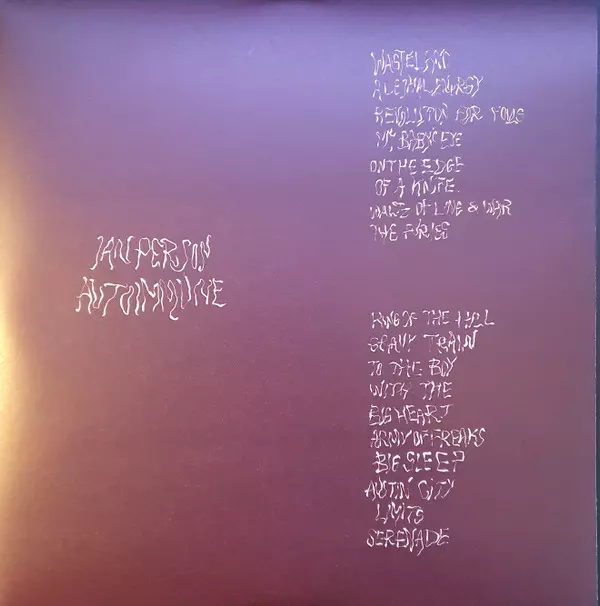 IAN PERSON
AUTOIMMUNE
WASTELAND
A LETHAL ENERGY
REVOLUTION FOR FOUR
MY BABY'S EYE
ON THE EDGE
OF A KNIFE
WALTZ OF LOVE & WAR
THE
KING OF THE HILL
GRAVY TRAIN
TO THE BOY
WITH THE
BIG HEART
ARMY OF FREAKS
BIG SLEEP
CITY
LIMITS
SERENADE